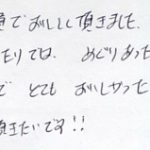 で おいしく 頂きました.
たりでは. めぐりあった
で とても おいしかった
頂きたいです!!